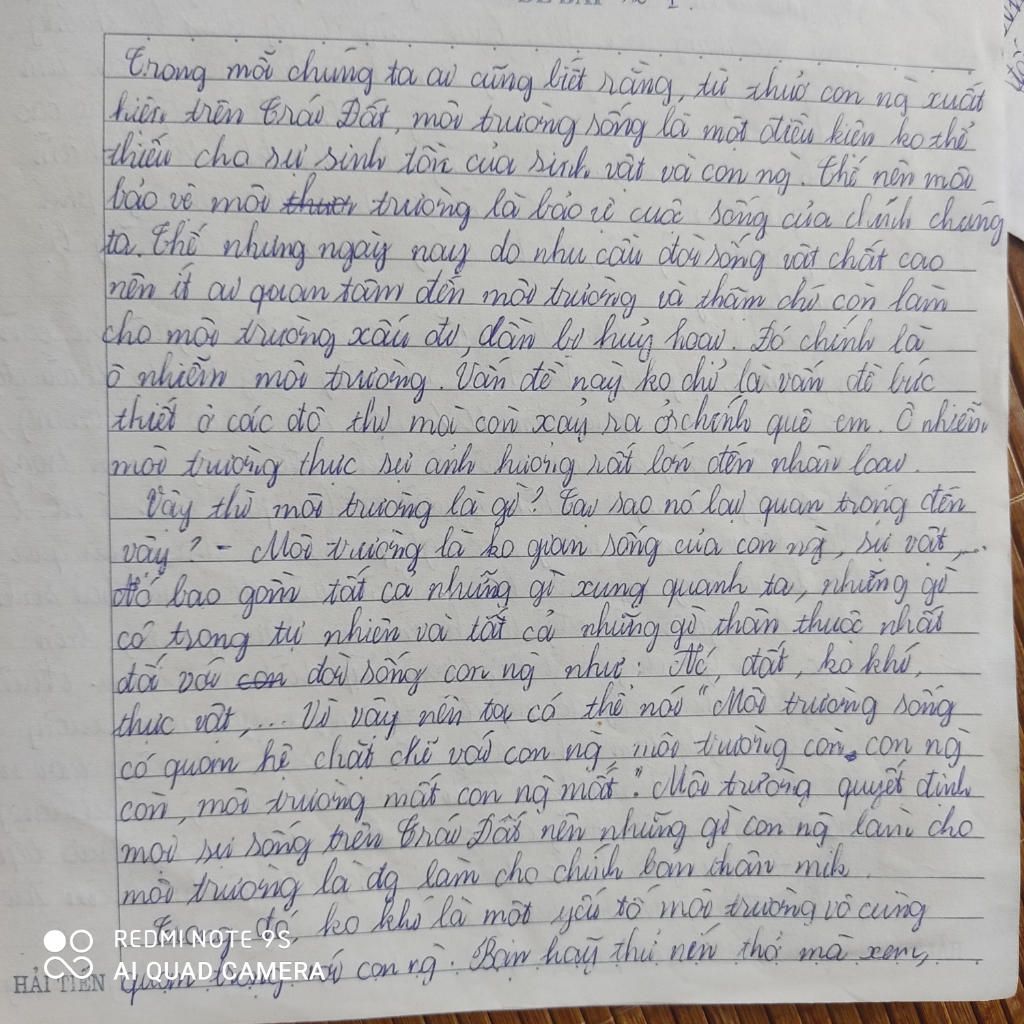 ĐỀ BÀI
Trong mỗi chúng ta ai cũng biết rằng, từ thuở con ng xuất
hiện trên Trái Đất, môi trường sống là một điều kiện ko thể
thiếu cho sự sinh tồn của sinh vật và con ng. Thế nên mới
bảo vệ môi trường là bảo vệ cuộc sống của chính chúng
ta. Thế nhưng ngày nay do nhu cầu đời sống vật chất cao
nên ít ai quan tâm đến môi trường và thậm chí còn làm
cho môi trường xấu đi, dần bị huỷ hoại. Đó chính là
ô nhiễm môi trường. Vấn đề này ko chỉ là vấn đề bức
thiết ở các đô thị mà còn xảy ra ở chính quê em. Ô nhiễm
môi trường thực sự ảnh hưởng rất lớn đến nhân loại.
Vậy thì môi trường là gì? Tại sao nó lại quan trọng đến
vậy? - Môi trường là ko gian sống của con ng, sự vật,...
đó bao gồm tất cả những gì xung quanh ta, những gì
có trong tự nhiên và tất cả những gì thân thuộc nhất
đối với con đời sống con ng như: Nc, đất, ko khí,
thực vật,... Vì vậy nên ta có thể nói "Môi trường sống
có quan hệ chặt chẽ với con ng, môi trường còn, con ng
còn, môi trường mất con ng mất". Môi trường quyết định
mọi sự sống trên Trái Đất nên những gì con ng làm cho
môi trường là đg làm cho chính bản thân mik.
Trong đó, ko khí là một yếu tố môi trường vô cùng
quan trọng với con ng. Bạn hãy thử nín thở mà xem,
REDMI NOTE 9S
AI QUAD CAMERA
HẢI TIẾN